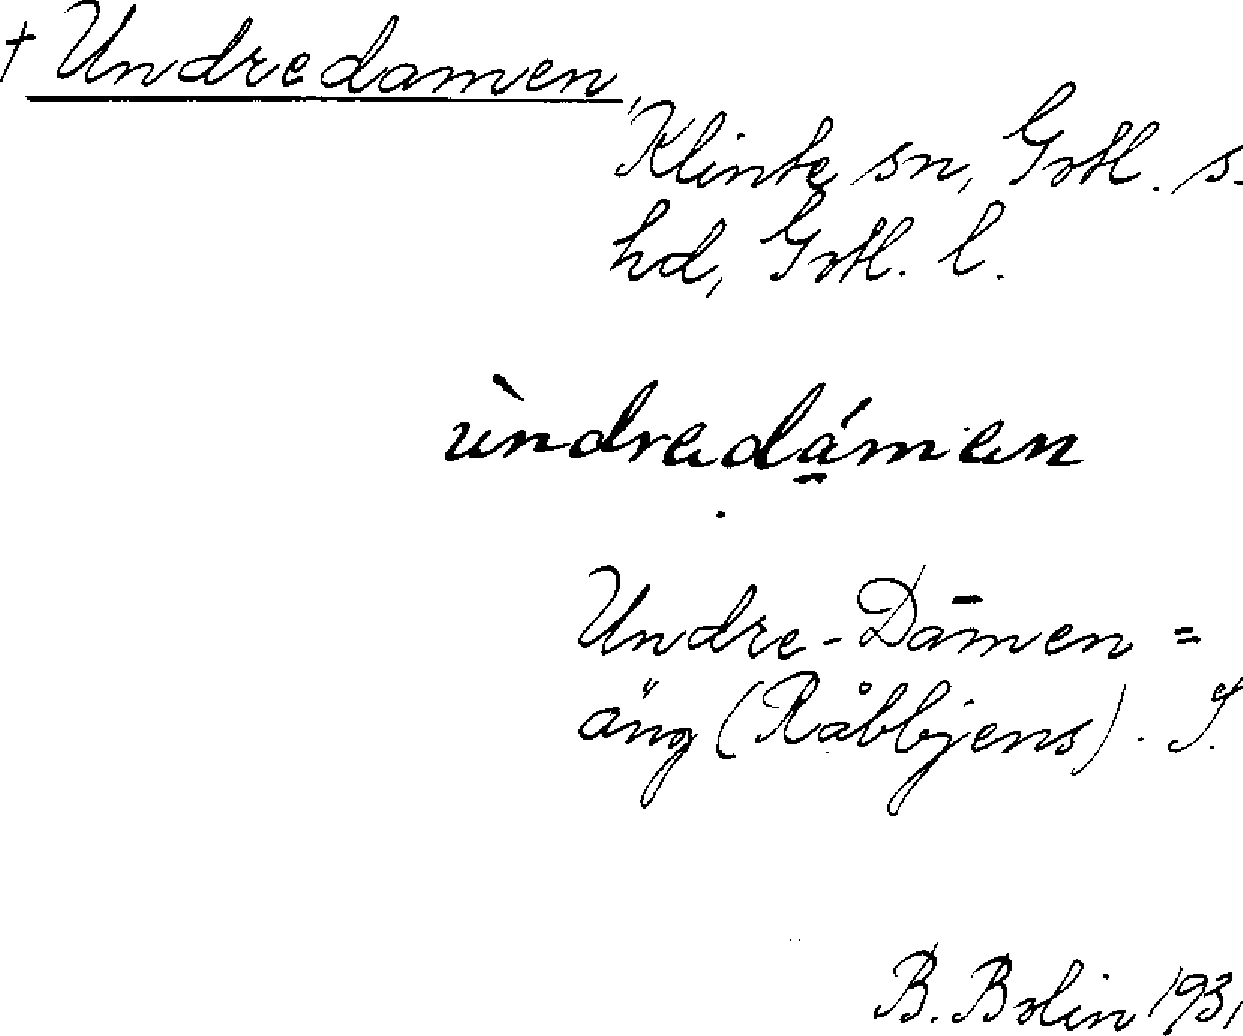 † Undredamen,
Klinte sn, Gotl. s.
hd, Gotl. l.
ùndredá̱men
Undre-Dāmen =
äng (Råbbjens). S.
B. Bolin 1931